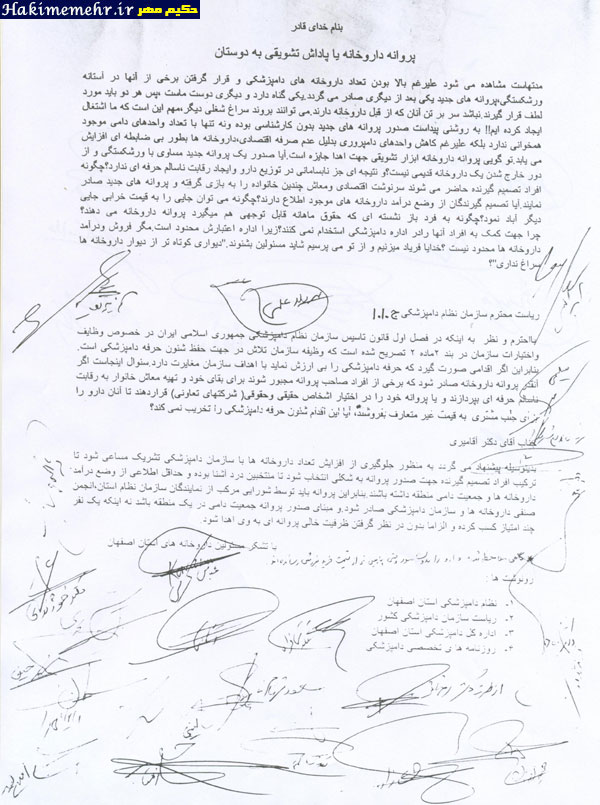 Hakimemehr.ir حکیم مهر
بنام خدای قادر
پروانه داروخانه یا پاداش تشویقی به دوستان
مدتهاست مشاهده می شود علیرغم بالا بودن تعداد داروخانه های دامپزشکی و قرار گرفتن برخی از آنها در آستانه
ورشکستگی،پروانه های جدید یکی بعد از دیگری صادر می گردد.یکی گناه دارد و دیگری دوست ماست ،پس هر دو باید مورد
لطف قرار گیرند.نباشد سر بر تن آنان که از قبل داروخانه دارند.می توانند بروند سراغ شغلی دیگر،مهم این است که ما اشتغال
ایجاد کرده ایم!! به روشنی پیداست صدور پروانه های جدید بدون کارشناسی بوده ونه تنها با تعداد واحدهای دامی موجود
همخوانی ندارد بلکه علیرغم کاهش واحدهای دامپروری بدلیل عدم صرفه اقتصادی،داروخانه ها بطور بی ضابطه ای افزایش
می یابد.تو گویی پروانه داروخانه ابزار تشویقی جهت اهدا جایزه است.آیا صدور یک پروانه جدید مساوی با ورشکستگی و از
دور خارج شدن یک داروخانه قدیمی نیست؟و نتیجه ای جز نابسامانی در توزیع دارو وایجاد رقابت ناسالم حرفه ای ندارد؟چگونه
افراد تصمیم گیرنده حاضر می شوند سرنوشت اقتصادی ومعاش چندین خانواده را به بازی گرفته و پروانه های جدید صادر
نمایند.آیا تصمیم گیرندگان از وضع درآمد داروخانه های موجود اطلاع دارند؟چگونه می توان جایی را به قیمت خرابی جایی
دیگر آباد نمود؟چگونه به فرد باز نشسته ای که حقوق ماهانه قابل توجهی هم میگیرد پروانه داروخانه می دهند؟
چرا جهت کمک به افراد آنها رادر اداره دامپزشکی استخدام نمی کنند؟زیرا اداره اعتبارش محدود است.مگر فروش ودرآمد
داروخانه ها محدود نیست ؟خدایا فریاد میزنیم و از تو می پرسیم شاید مسئولین بشنوند."دیواری کوتاه تر از دیوار داروخانه ها
سراغ نداری"؟
ریاست محترم سازمان نظام دامپزشکی ج.ا.ا
بااحترم و نظر به اینکه در فصل اول قانون تاسیس سازمان نظام دامپزشکی جمهوری اسلامی ایران در خصوص وظایف
واختیارات سازمان در بند ۲ماده ۲ تصریح شده است که وظیفه سازمان تلاش در جهت حفظ شئون حرفه دامپزشکی است.
بنابراین اگر اقدامی صورت گیرد که حرفه دامپزشکی را بی ارزش نماید با اهداف سازمان مغایرت دارد.سئوال اینجاست اگر
آنقدر پروانه داروخانه صادر شود که برخی از افراد صاحب پروانه مجبور شوند برای بقای خود و تهیه معاش خانوار به رقابت
ناسالم حرفه ای بپردازند و یا پروانه خود را در اختیار اشخاص حقیقی وحقوقی( شرکتهای تعاونی) قراردهند تا آنان دارو را
برای جلب مشتری به قیمت غیر متعارف بفروشند، آیا این اقدام شئون حرفه دامپزشکی را تخریب نمی کند؟
جناب آقای دکتر آقامیری
بدینوسیله پیشنهاد می گردد به منظور جلوگیری از افزایش تعداد داروخانه ها با سازمان دامپزشکی تشریک مساعی شود تا
ترکیب افراد تصمیم گیرنده جهت صدور پروانه به شکلی انتخاب شود تا منتخبین درد آشنا بوده و حداقل اطلاعی از وضع درآمد
داروخانه ها و جمعیت دامی منطقه داشته باشند.بنابراین پروانه باید توسط شورایی مرکب از نمایندگان سازمان نظام استان،انجمن
صنفی داروخانه ها و سازمان دامپزشکی صادر شود.و مبنای صدور پروانه جمعیت دامی در یک منطقه باشد نه اینکه یک نفر
چند امتیاز کسب کرده و الزاما بدون در نظر گرفتن ظرفیت خالی پروانه ای به وی اهدا شود.
با تشکر مسئولین داروخانه های استان اصفهان
رونوشت ها :
۱- نظام دامپزشکی استان اصفهان
۲- ریاست سازمان دامپزشکی کشور
۳- اداره کل دامپزشکی استان اصفهان
۴- روزنامه های تخصصی دامپزشکی